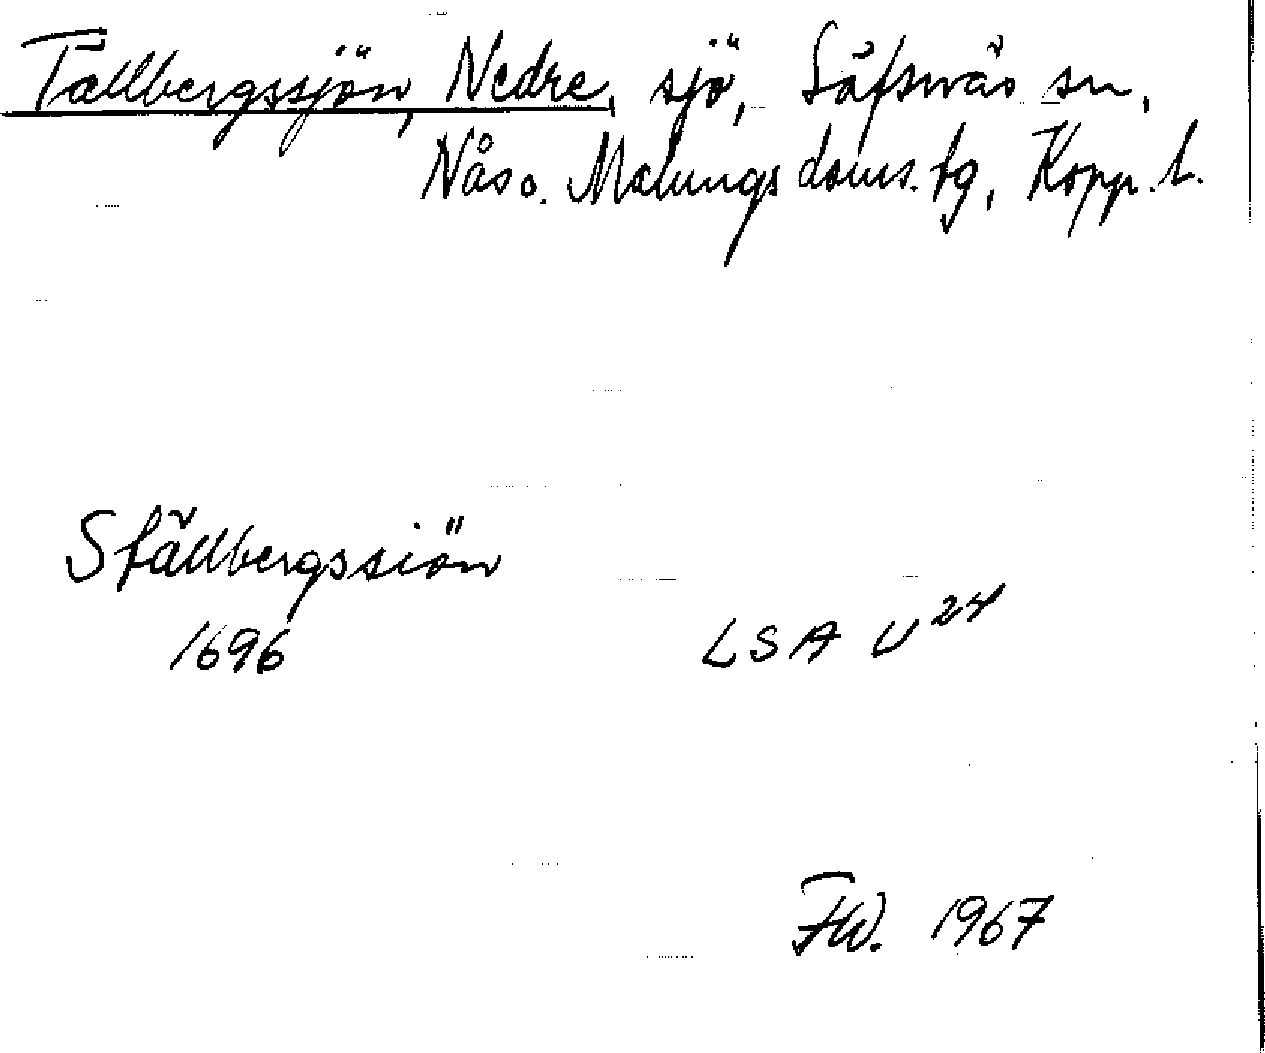 Tallbergssjön, Nedre, sjö, Säfsnäs sn,
Nås o. Malungs doms. tg, Kopp. l.
Ställbergssiön
1696
LSA U 24
FW. 1967